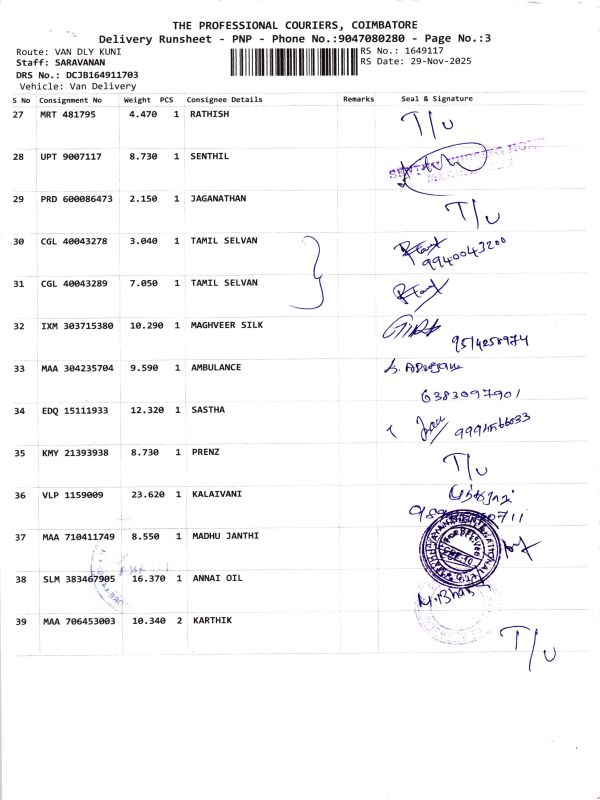 THE PROFESSIONAL COURIERS, COIMBATORE
Delivery Runsheet - PNP - Phone No.:9047080280 - Page No.:3
Route: VAN DLY KUNI
RS No.: 1649117
Staff: SARAVANAN
RS Date: 29-Nov-2025
DRS No.: DCJB164911703
Vehicle: Van Delivery
S No Consignment No Weight PCS Consignee Details Remarks Seal & Signature
27 MRT 481795 4.470 1 RATHISH T/U
28 UPT 9007117 8.730 1 SENTHIL
29 PRD 600086473 2.150 1 JAGANATHAN T/U
30 CGL 40043278 3.040 1 TAMIL SELVAN
9940043200
31 CGL 40043289 7.050 1 TAMIL SELVAN
32 IXM 303715380 10.290 1 MAGHVEER SILK
33 MAA 304235704 9.590 1 AMBULANCE
6383097901
34 EDQ 15111933 12.320 1 SASTHA
35 KMY 21393938 8.730 1 PRENZ T/U
36 VLP 1159009 23.620 1 KALAIVANI
37 MAA 710411749 8.550 1 MADHU JANTHI
38 SLM 383467905 16.370 1 ANNAI OIL
39 MAA 706453003 10.340 2 KARTHIK T/U